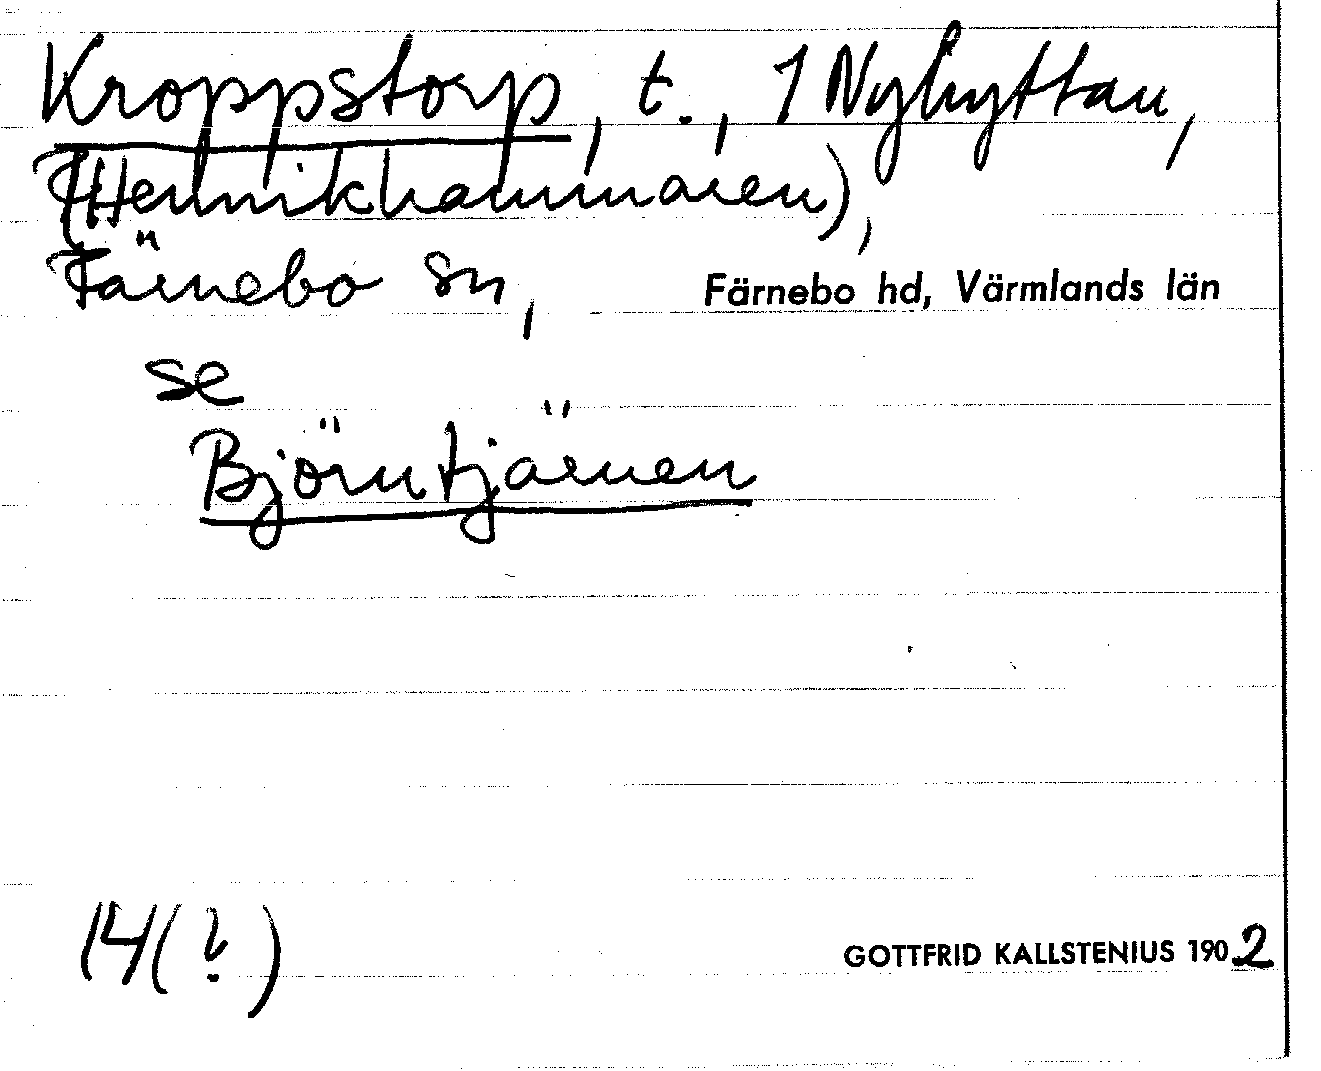 Kroppstorp, t., 1 Nyhyttan,
(Henrikhammaren),
Färnebo sn, Färnebo hd, Värmlands län
se
Björntjärnen
14(?)
GOTTFRID KALLSTENIUS 1902